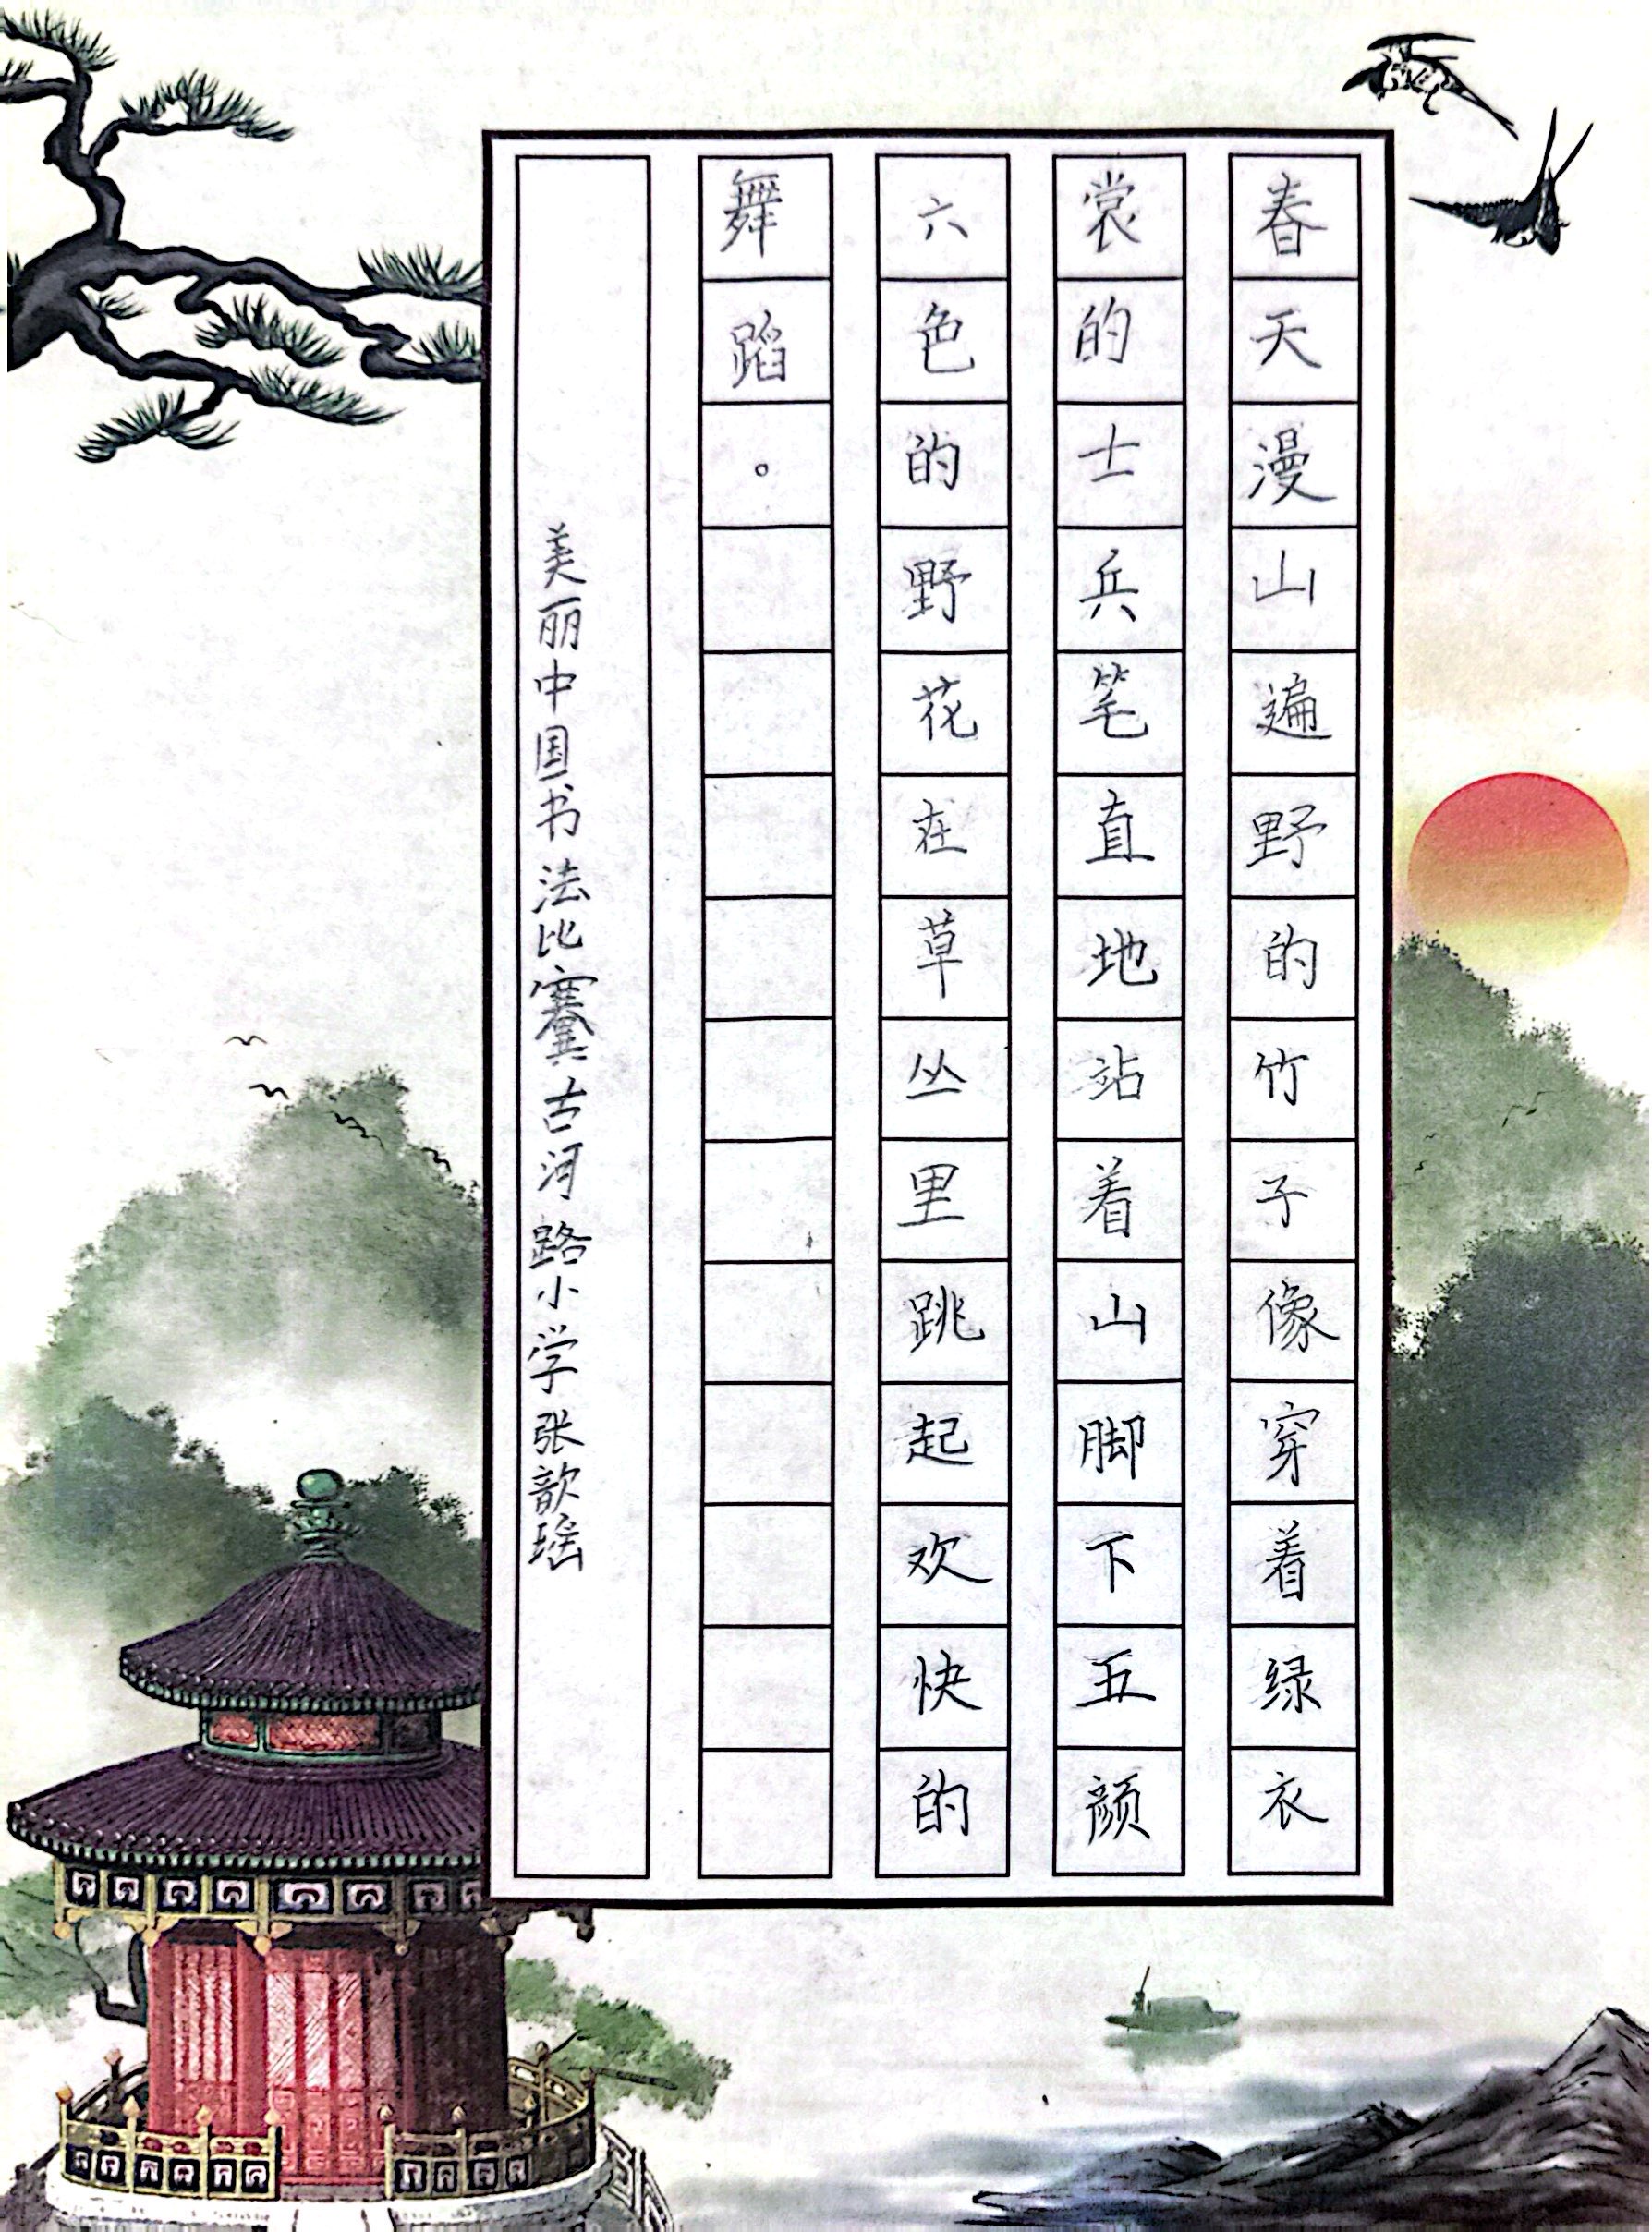 春天漫山遍野的竹子像穿着绿衣
裳的士兵笔直地站着山脚下五颜
六色的野花在草丛里跳起欢快的
舞蹈。
美丽中国书法比赛古河路小学张歆瑶